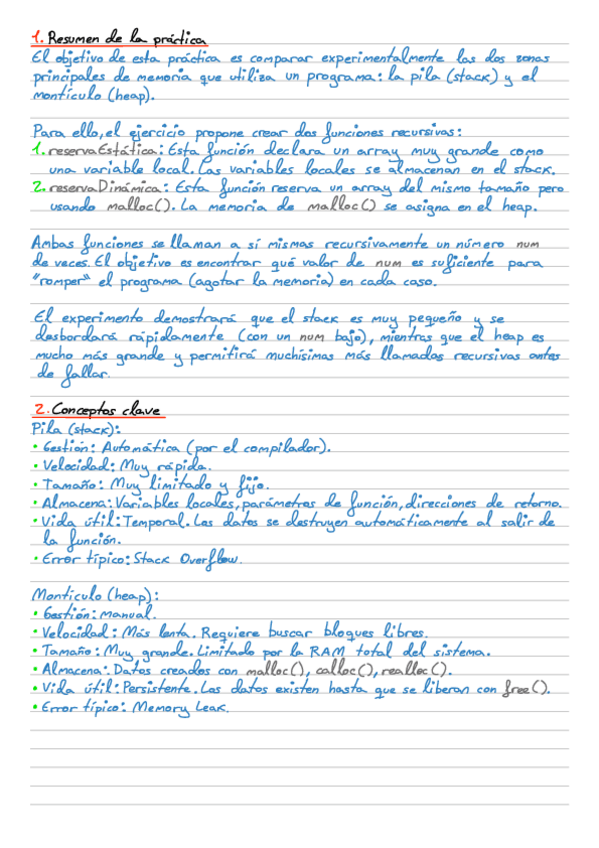 1. Resumen de la práctica
El objetivo de esta práctica es comparar experimentalmente las dos zonas
principales de memoria que utiliza un programa: la pila (stack) y el
montículo (heap).
Para ello, el ejercicio propone crear dos funciones recursivas:
1. reservaEstática: Esta función declara un array muy grande como
una variable local. Las variables locales se almacenan en el stack.
2. reservaDinámica: Esta función reserva un array del mismo tamaño pero
usando malloc(). La memoria de malloc() se asigna en el heap.
Ambas funciones se llaman a sí mismas recursivamente un número num
de veces. El objetivo es encontrar qué valor de num es suficiente para
"romper" el programa (agotar la memoria) en cada caso.
El experimento demostrará que el stack es muy pequeño y se
desbordará rápidamente (con un num bajo), mientras que el heap es
mucho más grande y permitirá muchísimas más llamadas recursivas antes
de fallar.
2. Conceptos clave
Pila (stack):
• Gestión: Automática (por el compilador).
• Velocidad: Muy rápida.
• Tamaño: Muy limitado y fijo.
• Almacena: Variables locales, parámetros de función, direcciones de retorno.
• Vida útil: Temporal. Los datos se destruyen automáticamente al salir de
la función.
• Error típico: Stack Overflow.
Montículo (heap):
• Gestión: manual.
• Velocidad: Más lenta. Requiere buscar bloques libres.
• Tamaño: Muy grande. Limitado por la RAM total del sistema.
• Almacena: Datos creados con malloc(), calloc(), realloc().
• Vida útil: Persistente. Los datos existen hasta que se liberan con free().
• Error típico: Memory Leak.